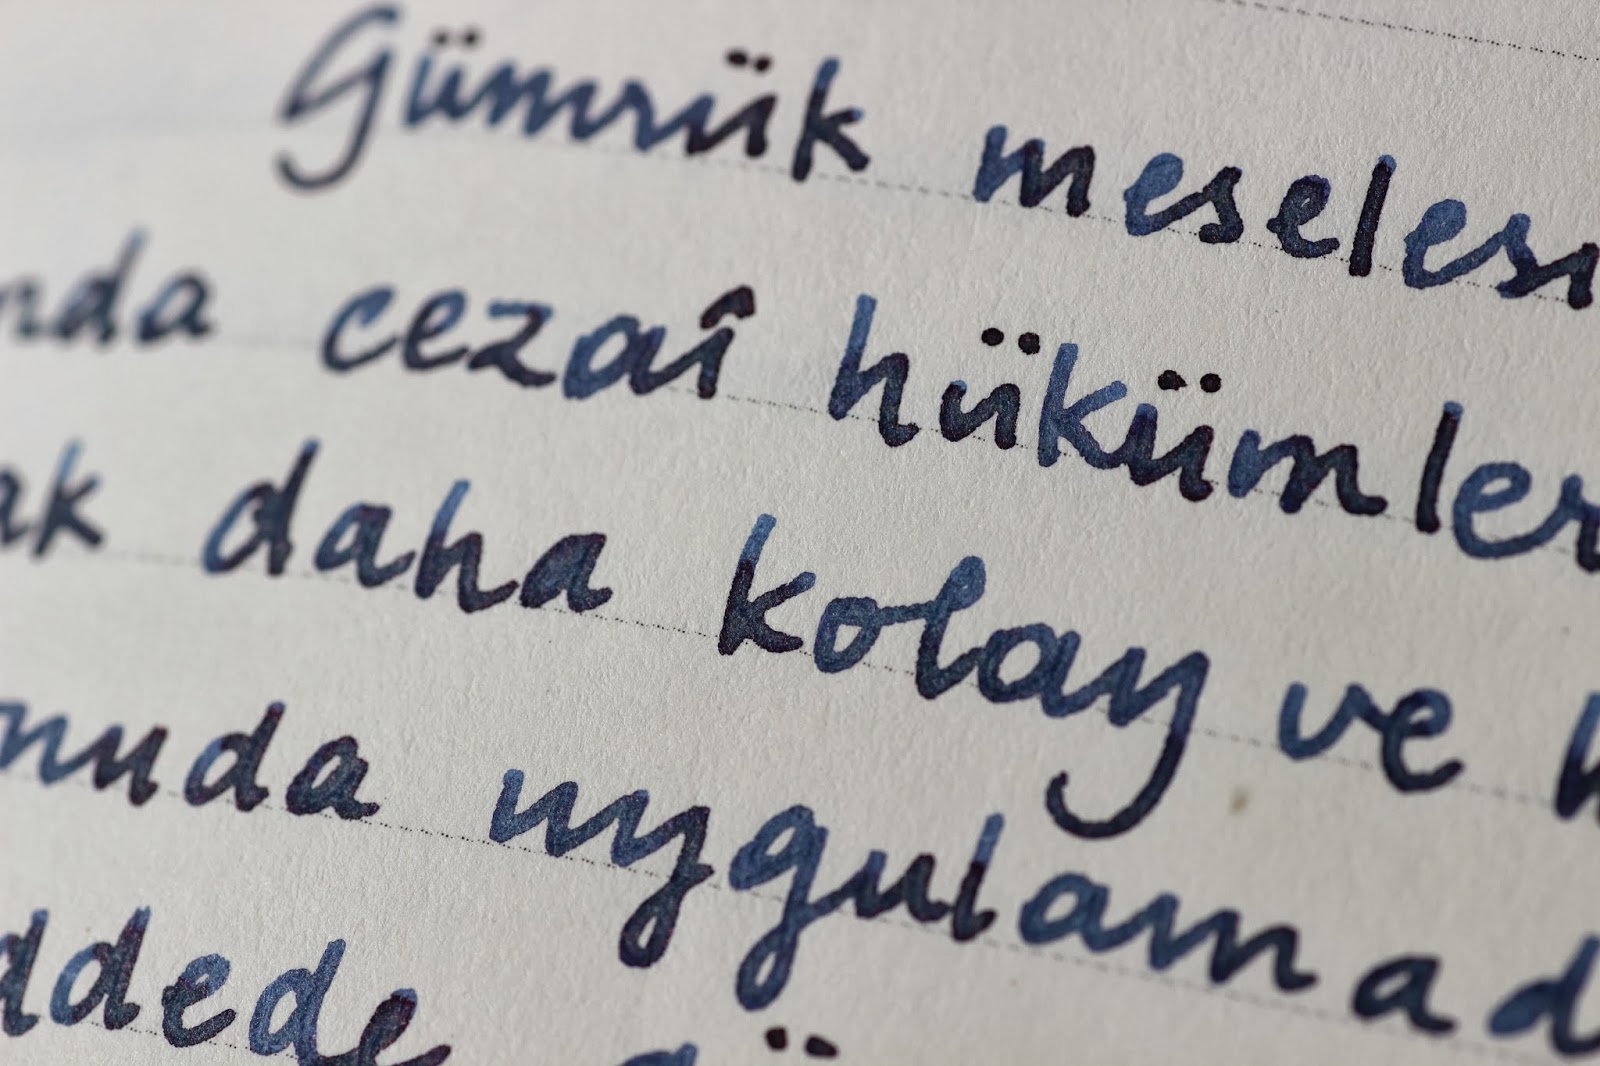 Gümrük meselesi
nda cezaî hükümler
ak daha kolay ve
nuda uygulamad
ddede